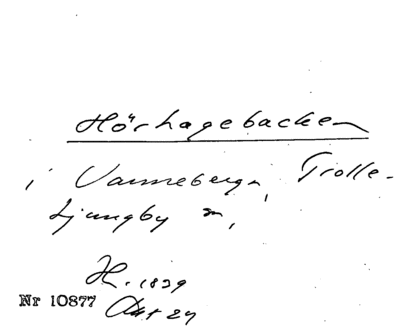 Hörhagebacken
i Vanneberga, Trolle-
Ljungby sn,
H. 1829
Nr 10877 Akt 24